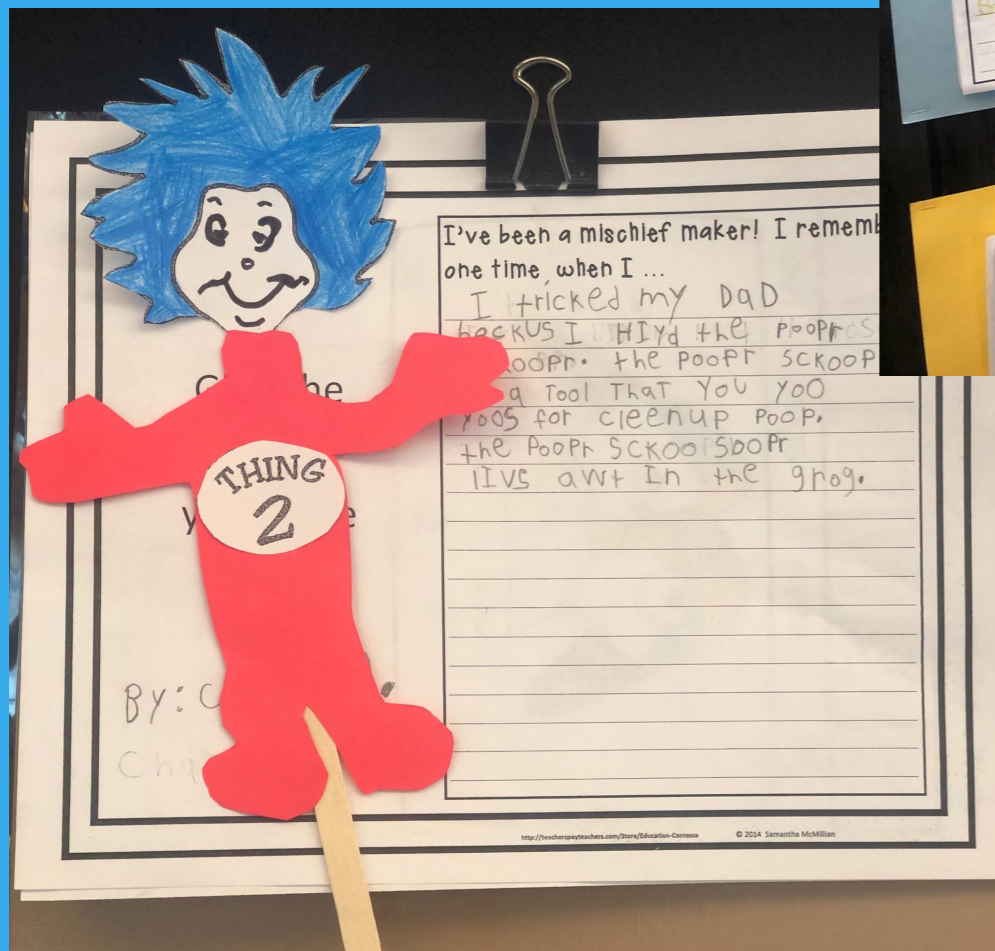 I've been a mischief maker! I rememb
one time, when I ...
I tricked my DaD
beckus I HIyd the poopr
oopr. the poopr sckoop
a Tool That You yoo
yoos for cleenup poop.
the Poopr SCKOO Soopr
lIVs awt In the grog.
THING
2
By: C
Cha
http://teacherspayteachers.com/Store/Education-Contessa © 2014 Samantha McMillian